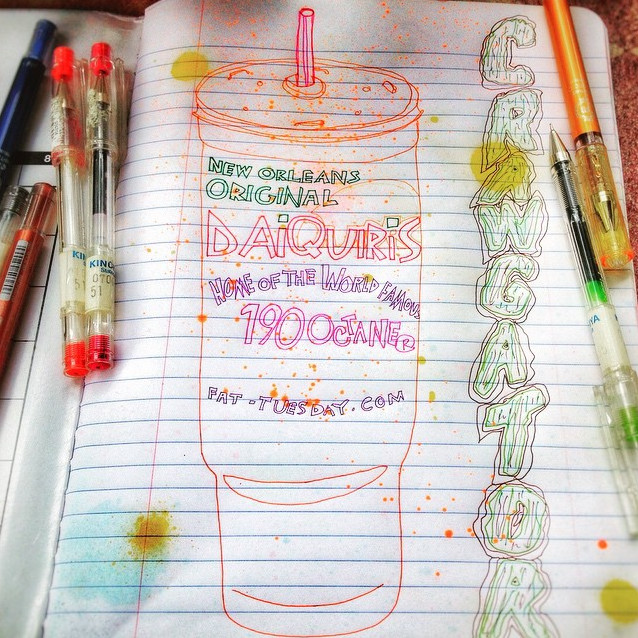 NEW ORLEANS
ORIGINAL
DAiQUiRiS
HOME OF THE WORLD FAMOUS
190 OCTANE®
FAT-TUESDAY.COM
CRAWGATOR
8
51
070
51